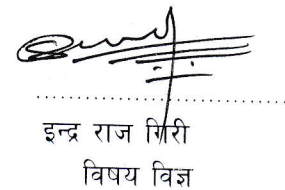 इन्द्र राज गिरी
विषय विज्ञ